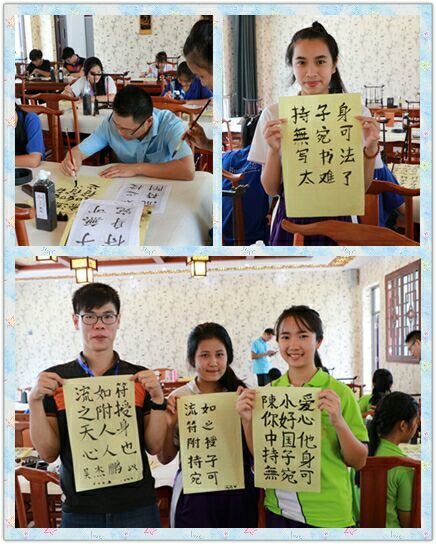 持子身
無宛可
写书法
太难了
流如符
之附授
天人身
心人也
吴杰鹏
流如
符之
附授
持子
宛可
陳小爱
你好心
中国他
持子身
無宛可